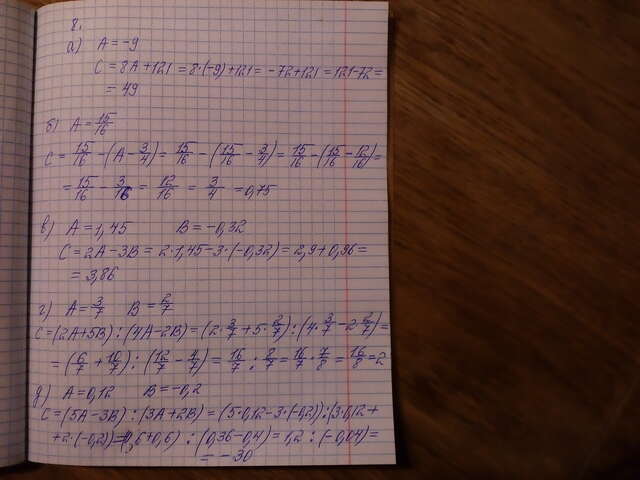 8.
а) A = -9
C = 8A + 121 = 8·(-9) + 121 = -72 + 121 = 121 - 72 =
= 49
б) A = 15/16
C = 15/16 - (A - 3/4) = 15/16 - (15/16 - 3/4) = 15/16 - (15/16 - 12/16) =
= 15/16 - 3/16 = 12/16 = 3/4 = 0,75
в) A = 1,45 B = -0,32
C = 2A - 3B = 2·1,45 - 3·(-0,32) = 2,9 + 0,96 =
= 3,86
г) A = 3/7 B = 2/7
C = (2A + 5B) : (4A - 2B) = (2·3/7 + 5·2/7) : (4·3/7 - 2·2/7) =
= (6/7 + 10/7) : (12/7 - 4/7) = 16/7 : 8/7 = 16/7 · 7/8 = 16/8 = 2
д) A = 0,12 B = -0,2
C = (5A - 3B) : (3A + 2B) = (5·0,12 - 3·(-0,2)) : (3·0,12 +
+ 2·(-0,2)) = (0,6 + 0,6) : (0,36 - 0,4) = 1,2 : (-0,04) =
= -30